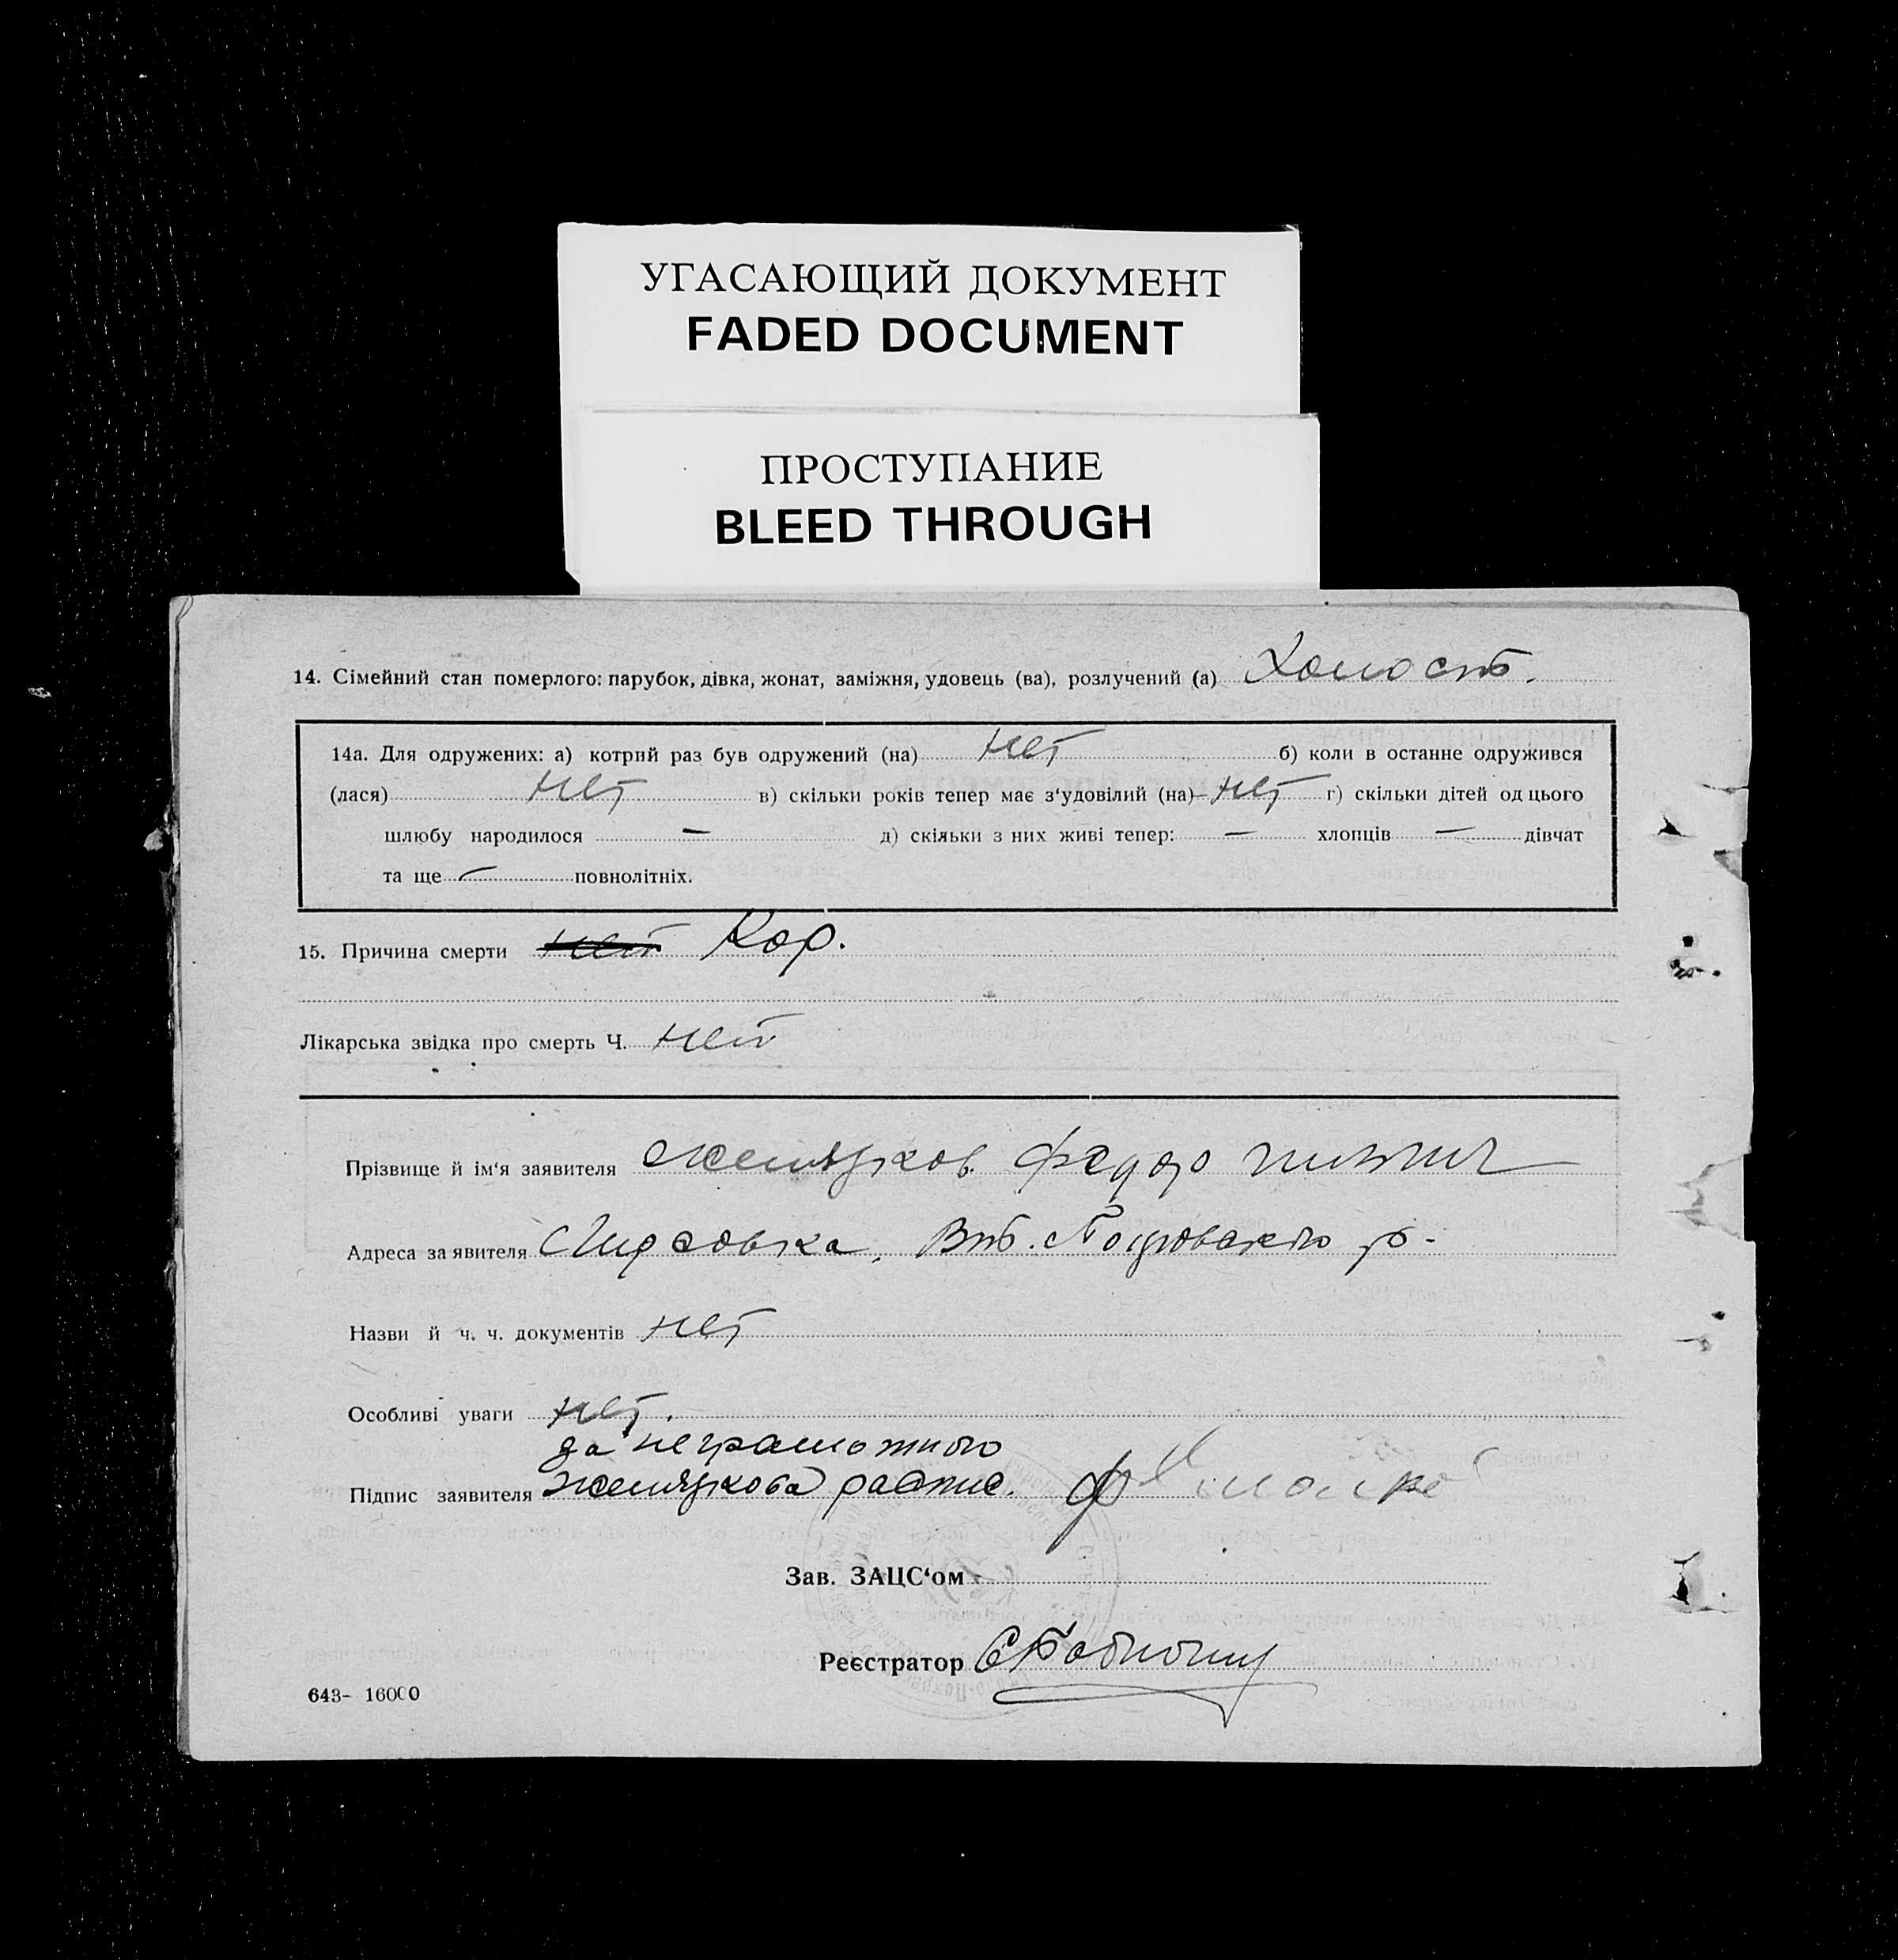 УГАСАЮЩИЙ ДОКУМЕНТ
FADED DOCUMENT
ПРОСТУПАНИЕ
BLEED THROUGH
14. Сімейний стан померлого: парубок, дівка, жонат, заміжня, удовець (ва), розлучений (а) Холост.
14а. Для одружених: а) котрий раз був одружений (на) нет б) коли в останне одружився
(лася) нет в) скільки років тепер має з‘удовілий (на) нет г) скільки дітей од цього
шлюбу народилося — д) скільки з них живі тепер: — хлопців — дівчат
та ще — повнолітніх.
15. Причина смерти нет Кор.
Лікарська звідка про смерть Ч. нет
Прізвище й ім‘я заявителя Федор
Адреса заявителя
Назви й ч. ч. документів нет
Особливі уваги нет.
за неграмотного
Підпис заявителя
Зав. ЗАЦС‘ом
Реєстратор
643- 16000